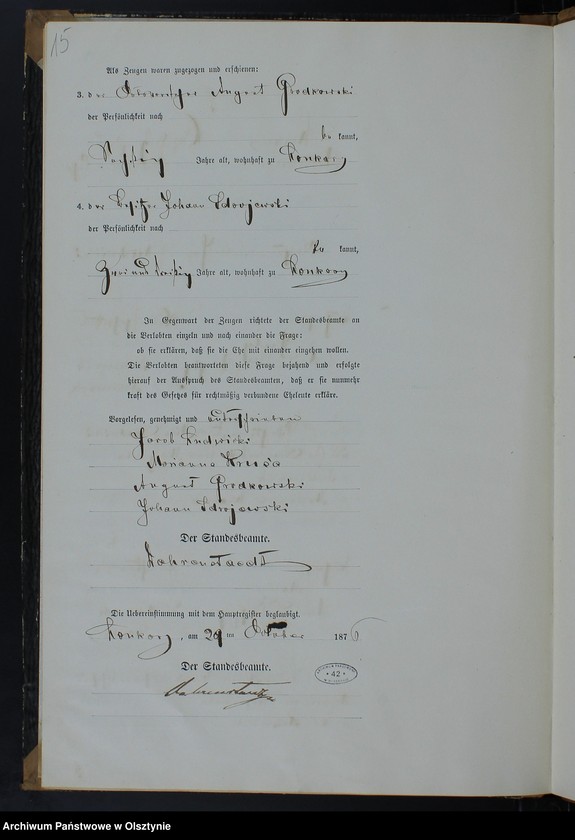 15
Als Zeugen waren zugezogen und erschienen:
3. der August Grodkowski
der Persönlichkeit nach
bekannt,
Sechszig Jahre alt, wohnhaft zu Konkory
4. der Besitzer Johann
der Persönlichkeit nach
bekannt,
Zwei und dreißig Jahre alt, wohnhaft zu Konkory
In Gegenwart der Zeugen richtete der Standesbeamte an
die Verlobten einzeln und nach einander die Frage:
ob sie erklären, daß sie die Ehe mit einander eingehen wollen.
Die Verlobten beantworteten diese Frage bejahend und erfolgte
hierauf der Ausspruch des Standesbeamten, daß er sie nunmehr
kraft des Gesetzes für rechtmäßig verbundene Eheleute erkläre.
Vorgelesen, genehmigt und unterschrieben
Jacob Ludwicki
Marianna
August Grodkowski
Johann
Der Standesbeamte.
Die Uebereinstimmung mit dem Hauptregister beglaubigt.
Konkory, am 29 im October 1876
Der Standesbeamte.
42
Archiwum Państwowe w Olsztynie